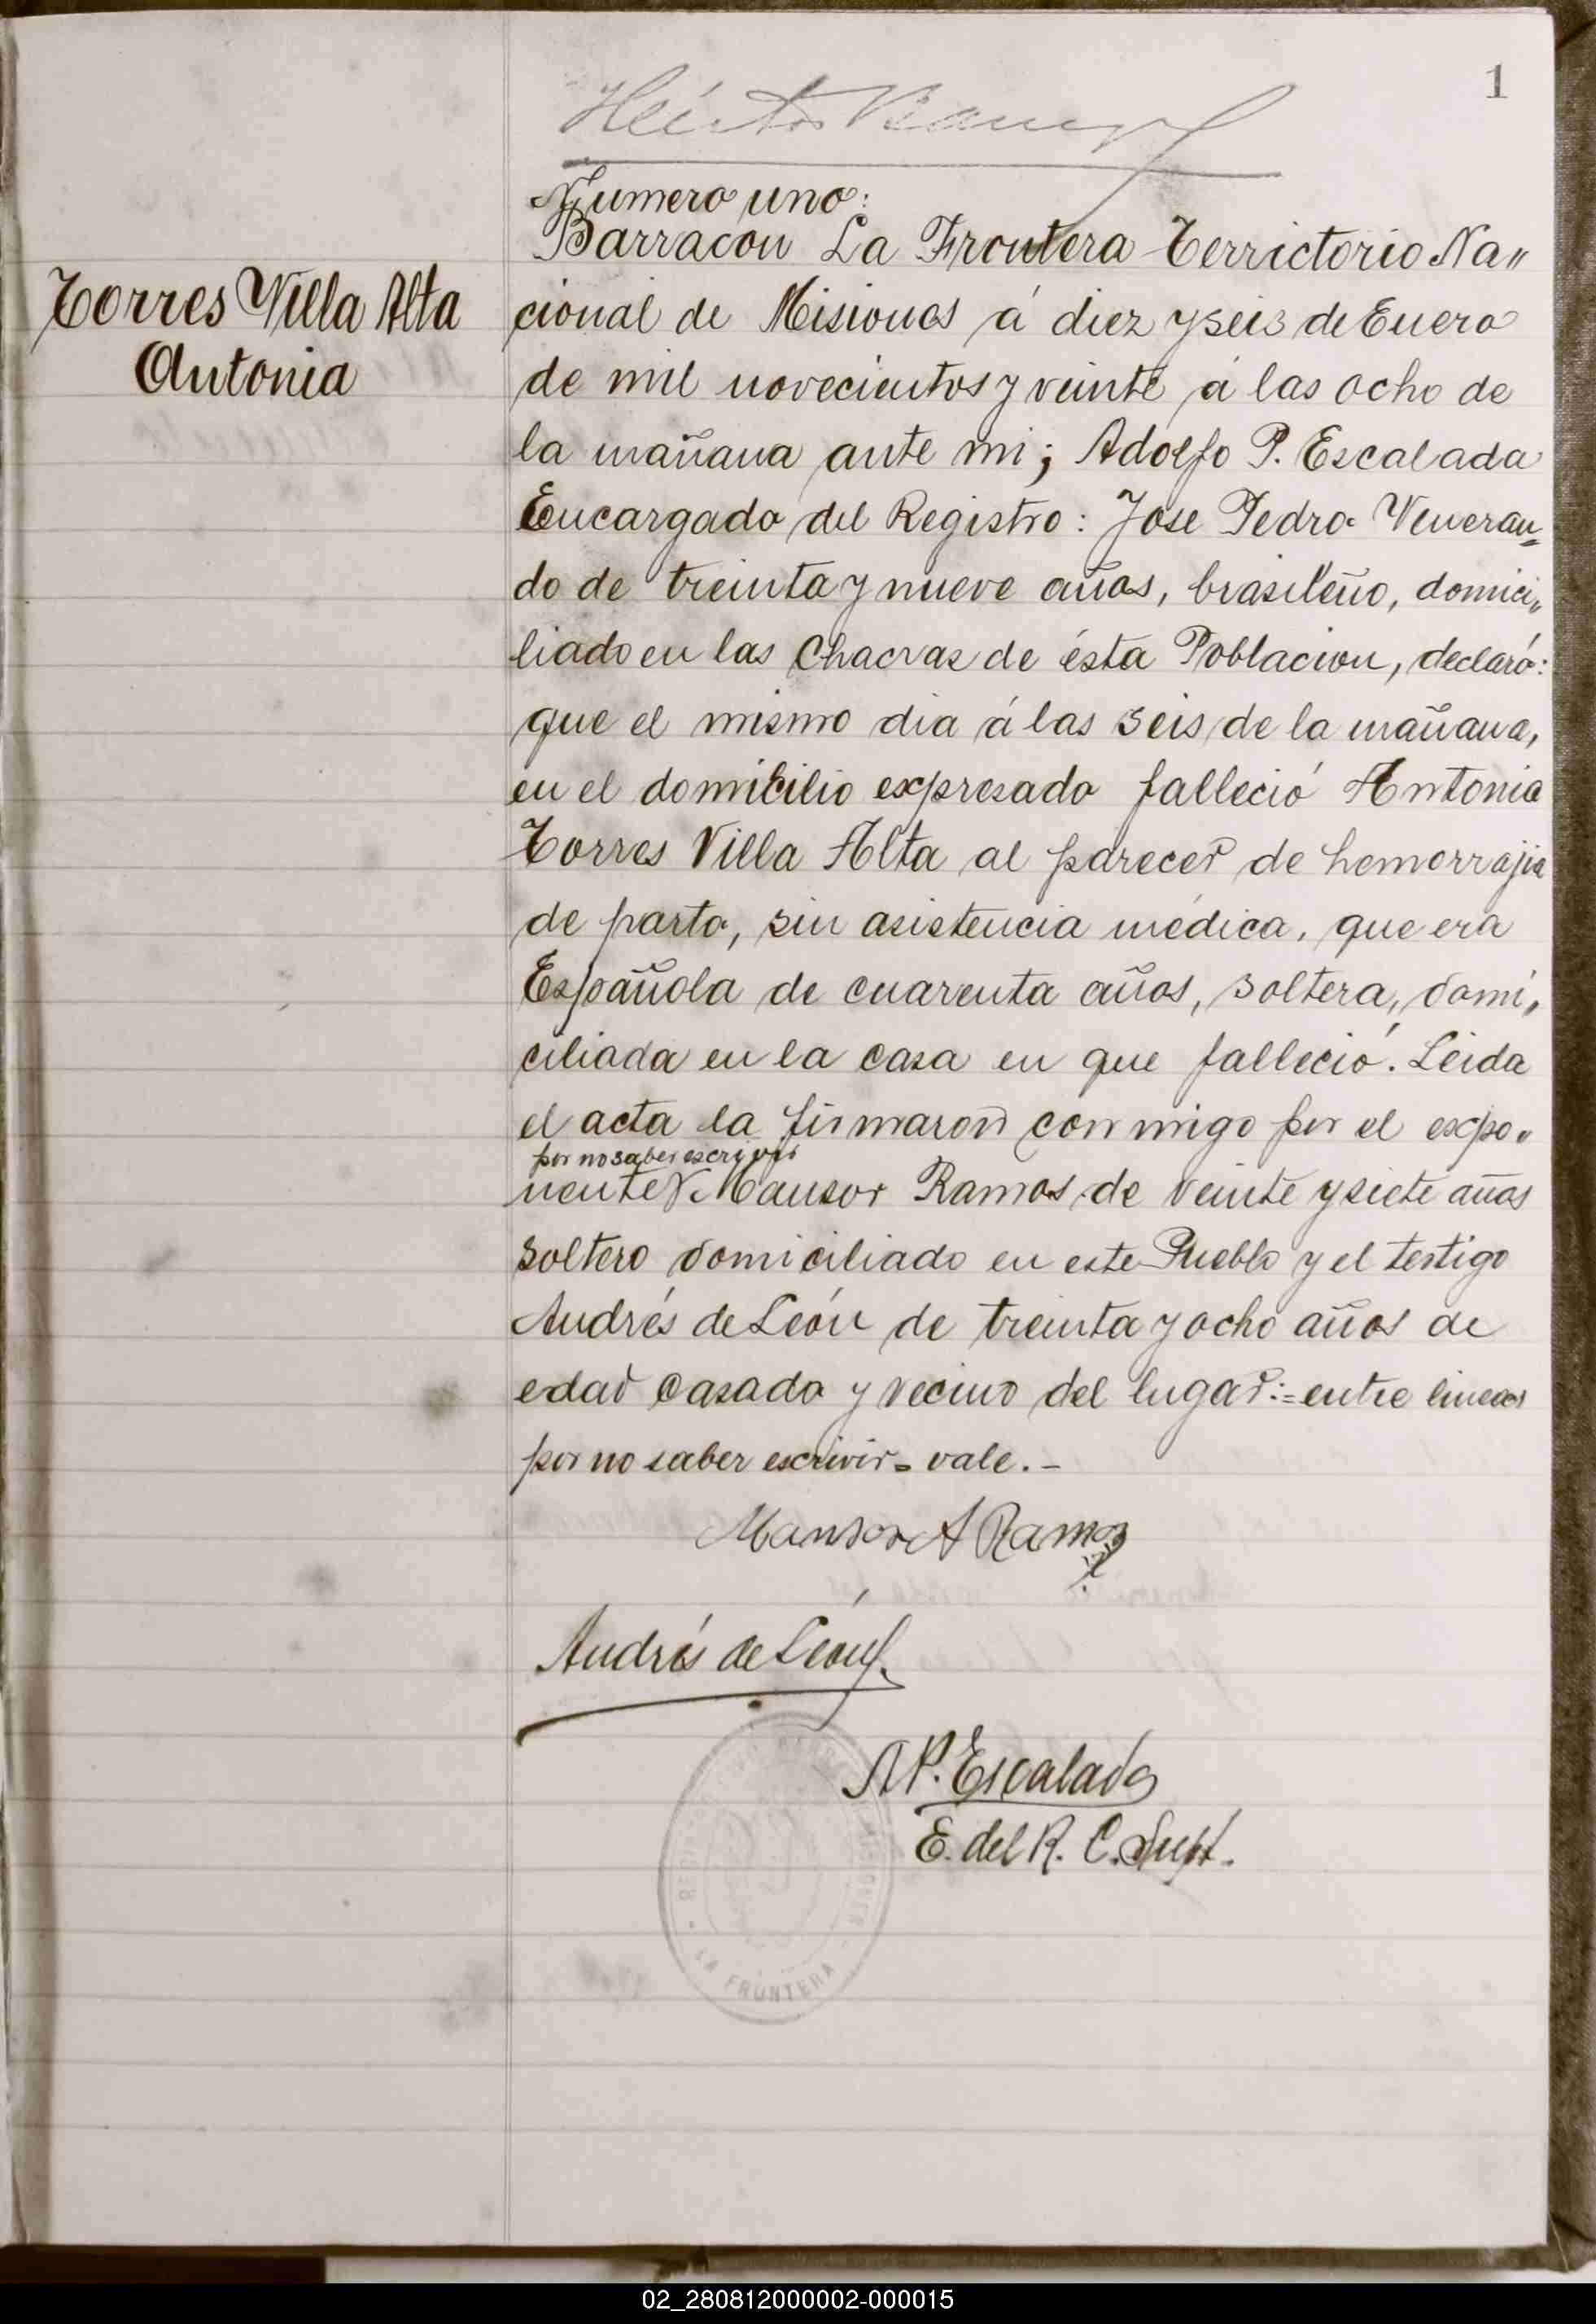 1
Héctor Barreyro
Numero uno:
Barracon La Frontera Terrictorio Na„
Torres Villa Alta
Antonia
cional de Misiones á diez y seis de Enero
de mil novecientos y veinte á las ocho de
la mañana ante mi; Adolfo P. Escalada
Encargado del Registro: Jose Pedro Veneran=
do de treinta y nueve años, brasileño, domici„
liado en las Chacras de ésta Poblacion, declaró:
que el mismo dia á las seis de la mañana,
en el domicilio expresado falleció Antonia
Torres Villa Alta al parecer de hemorrajia
de parto, sin asistencia médica, que era
Española de cuarenta años, soltera, domi„
ciliada en la casa en que falleció. Leida
el acta la firmaron conmigo por el expo„
por no saber escrivir
nente Mansor Ramos de veinte y siete años
soltero domiciliado en este Pueblo y el testigo
Andrés de León de treinta y ocho años de
edad casado y vecino del lugar:=entre lineas
por no saber escrivir= vale.-
Mansor A Ramos
Andrés de León
A P. Escalada
E. del R. C. Supt.
LA FRONTERA
02_280812000002-000015